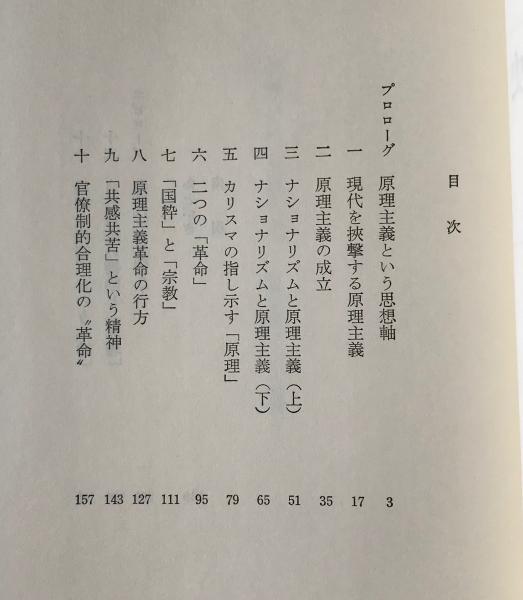 目次
プロローグ 原理主義という思想軸 3
一 現代を挾撃する原理主義 17
二 原理主義の成立 35
三 ナショナリズムと原理主義(上) 51
四 ナショナリズムと原理主義(下) 65
五 カリスマの指し示す「原理」 79
六 二つの「革命」 95
七 「国粋」と「宗教」 111
八 原理主義革命の行方 127
九 「共感共苦」という精神 143
十 官僚制的合理化の〝革命〟 157